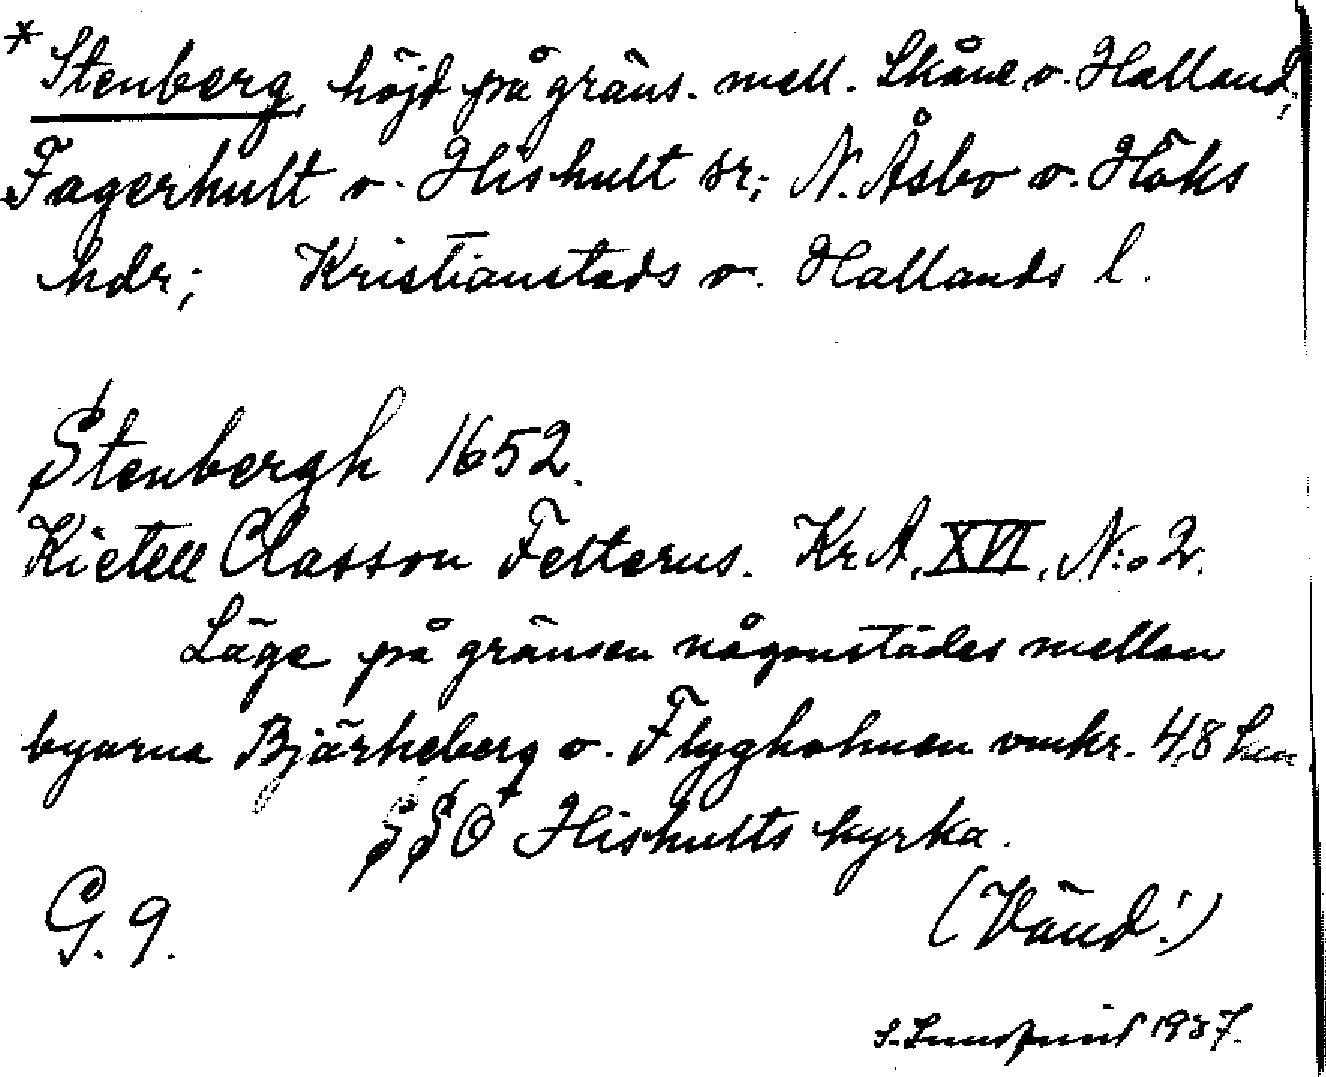 * Stenberg, höjd på gräns. mell. Skåne o. Halland;
Fagerhult o. Hishult sr; N. Åsbo o. Höks
hdr; Kristianstads o. Hallands l.
Stenbergh 1652.
Kietell Classon Felterus. KrA, XVI, N:o 2.
Läge på gränsen någonstädes mellan
byarna Bjärkeberg o. Flygholmen omkr. 4,8 km
SSO Hishults kyrka.
G. 9.
(Vänd!)
S. Lundqvist 1937.